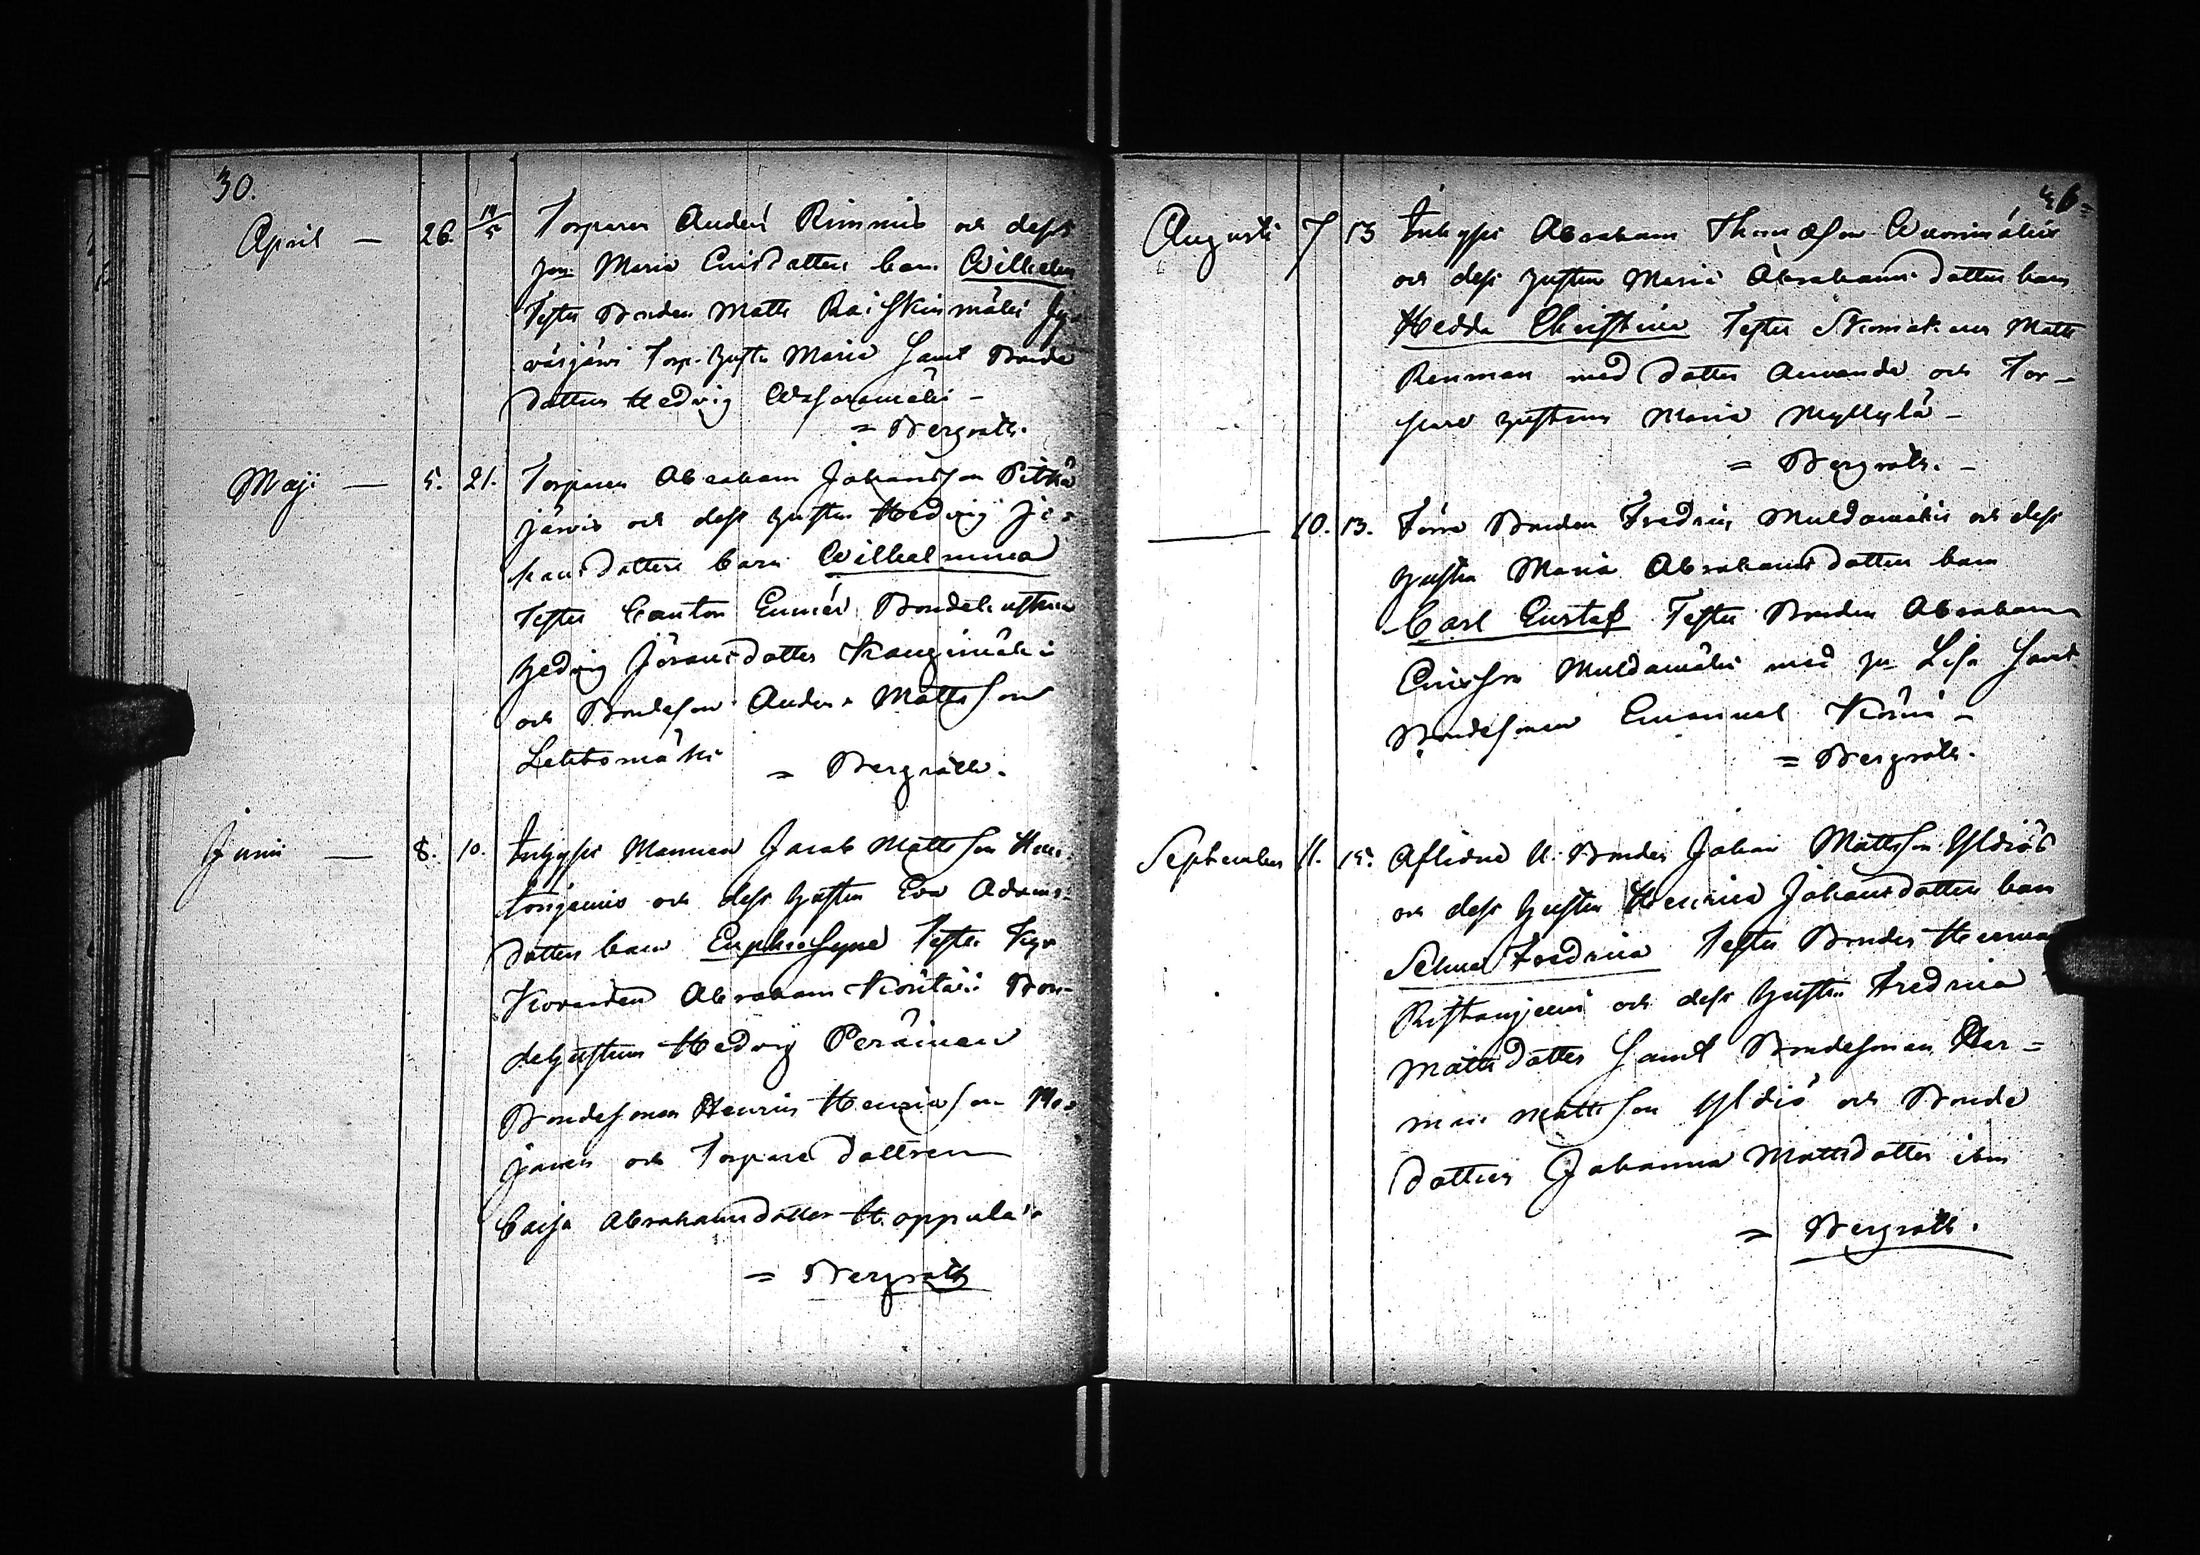 30.
April — 26 14/5 Torparen Anders Rimmis och dess
hu Maria Ericsdotters barn Wilhelm
Testes Bonden Matts Raiskinmäki
Torp. hustr Maria samt Bonde
dottren Hedvig Wasaramäki –
= Bergroth.
Maji — 5. 21. Torparen Abraham Johansson Pitkä
järvis och dess hustru Hedvig Jo=
hansdotters barn Wilhelmina
Testes Cantor Bondehustrun
Hedvig Göransdotter Kangimäki
och Bondeson Anders Mattsson
Lehtomäki = Bergroth.
Junii — 8. 10. Inhyses Mannen Jacob Mattsson
och dess hustru Eva Adams-
dotters barn Euphrosyne Testes Kyr
Abraham Bon-
dehustrun Hedvig Peräinen
Bondesonen Henric Henricsson
och Torparedottren
Caisa Abrahamsdotter Hoppula
= Bergroth
Augusti 7 13 Inhyses Abraham Thomæson Wuorimäkis
och dess hustru Maria Abrahamsdotters barn
Hedda Christina Testes Skomakaren Matts
Renman med dotter Amanda och Tor–
pare hustrun Maria Myllylä –
= Bergroth. –
—— 10. 13. Förre Bonden Fredric Muldamäkis och dess
hustru Maria Abrahamsdotters barn
Carl Gustaf Testes Bonden Abraham
Ericsson Muldamäki med hu Lisa samt
Bondesonen Emanuel –
= Bergroth.
September 11. 15. Aflidne Bonden Johan Mattsson Yldiös
och dess hustru Henrica Johansdotters barn
Selma Fredrica Testes Bonden Herman
Ristaniemi och dess hustru Fredrica
Mattsdotter samt Bondesonen Her=
man Mattsson Yldiö och Bonde
dottren Johanna Mattsdotter ibm
= Bergroth.